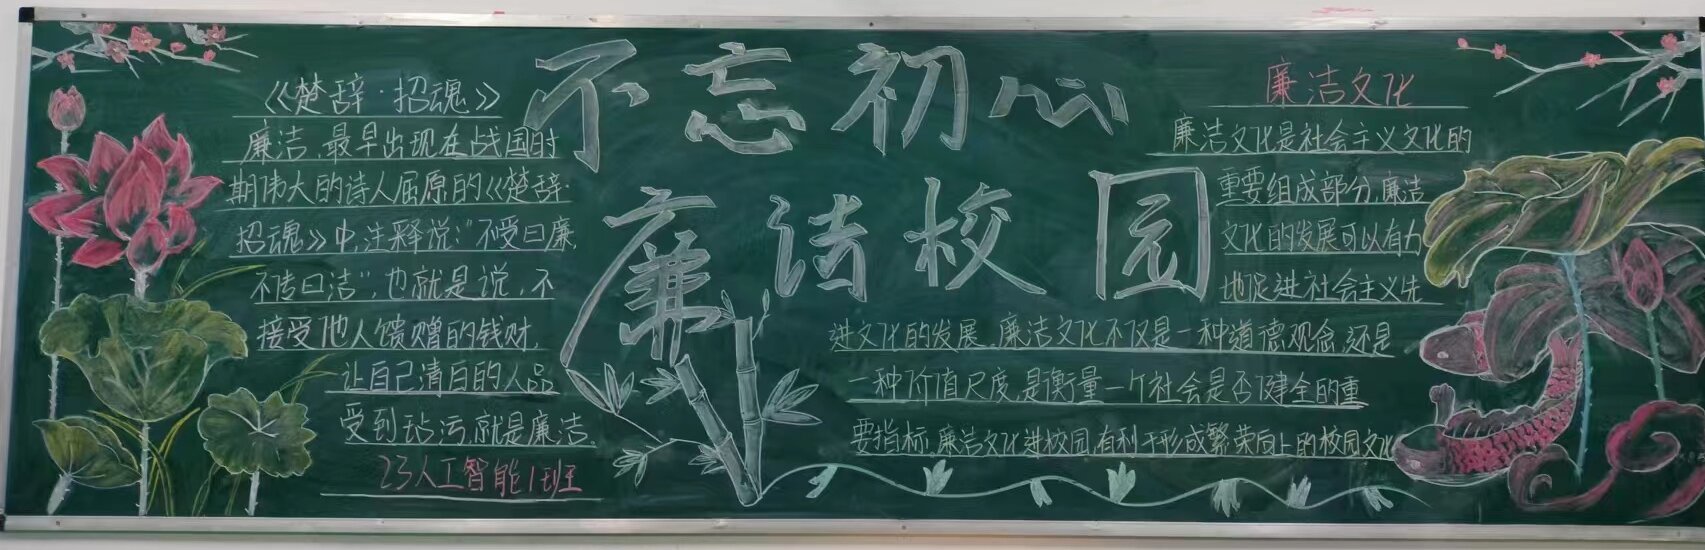 不忘初心
廉洁校园
《楚辞·招魂》
廉洁,最早出现在战国时
期伟大的诗人屈原的《楚辞·
招魂》中,注释说:“不受曰廉,
不污曰洁”,也就是说,不
接受他人馈赠的钱财,
让自己清白的人品
受到玷污,就是廉洁.
23人工智能1班
廉洁文化
廉洁文化是社会主义文化的
重要组成部分,廉洁
文化的发展可以有力
地促进社会主义先
进文化的发展,廉洁文化不仅是一种道德观念,还是
一种价值尺度,是衡量一个社会是否健全的重
要指标,廉洁文化进校园,有利于形成繁荣向上的校园文化